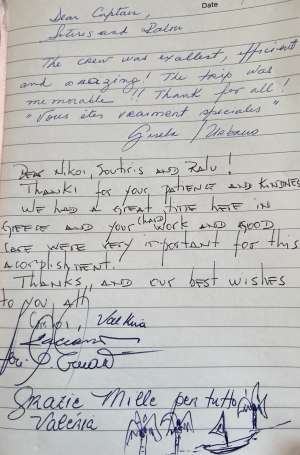 Date
Dear Captain,
Sotiris and Ralou
The crew was exallest, efficient
and amazing! The trip was
memorable!! Thank for all!
"Vous êtes vraiment speciales"
Gisela /
Dear Nikoi, Soutiris and Ralu!
Thanks for your patience and kindness
We had a great time here in
Greece and your (hard) work and good
care were very important for this
acomplishtent.
Thanks, and our best wishes
to you all
Valkiria
Grazie Mille per tutto!
Valéria